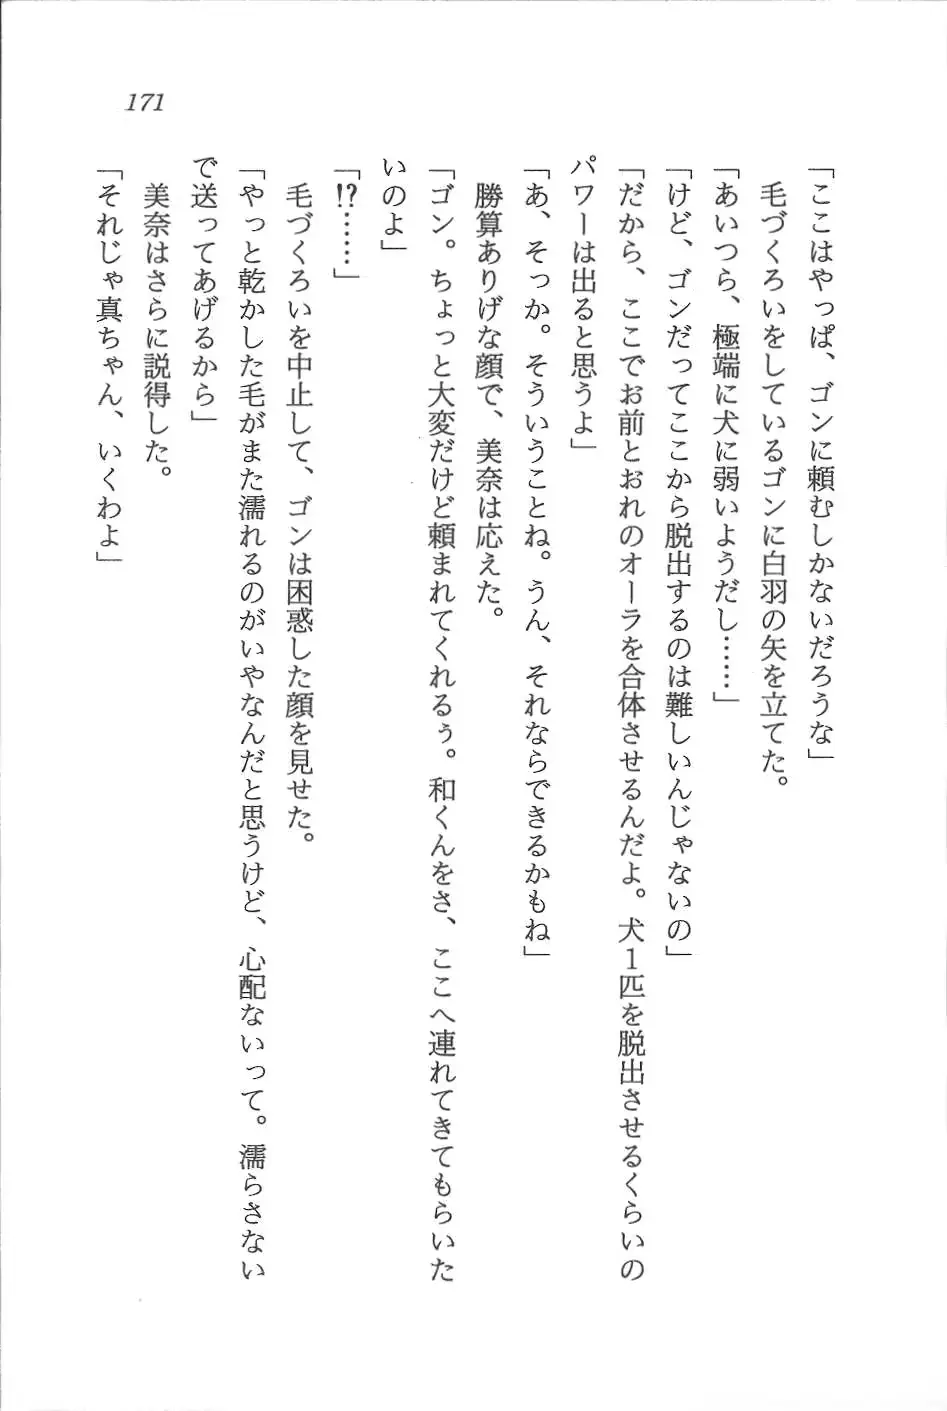 171
「ここはやっぱ、ゴンに頼むしかないだろうな」
毛づくろいをしているゴンに白羽の矢を立てた。
「あいつら、極端に犬に弱いようだし……」
「けど、ゴンだってここから脱出するのは難しいんじゃないの」
「だから、ここでお前とおれのオーラを合体させるんだよ。犬１匹を脱出させるくらいの
パワーは出ると思うよ」
「あ、そっか。そういうことね。うん、それならできるかもね」
勝算ありげな顔で、美奈は応えた。
「ゴン。ちょっと大変だけど頼まれてくれるぅ。和くんをさ、ここへ連れてきてもらいた
いのよ」
「!?……」
毛づくろいを中止して、ゴンは困惑した顔を見せた。
「やっと乾かした毛がまた濡れるのがいやなんだと思うけど、心配ないって。濡らさない
で送ってあげるから」
美奈はさらに説得した。
「それじゃ真ちゃん、いくわよ」